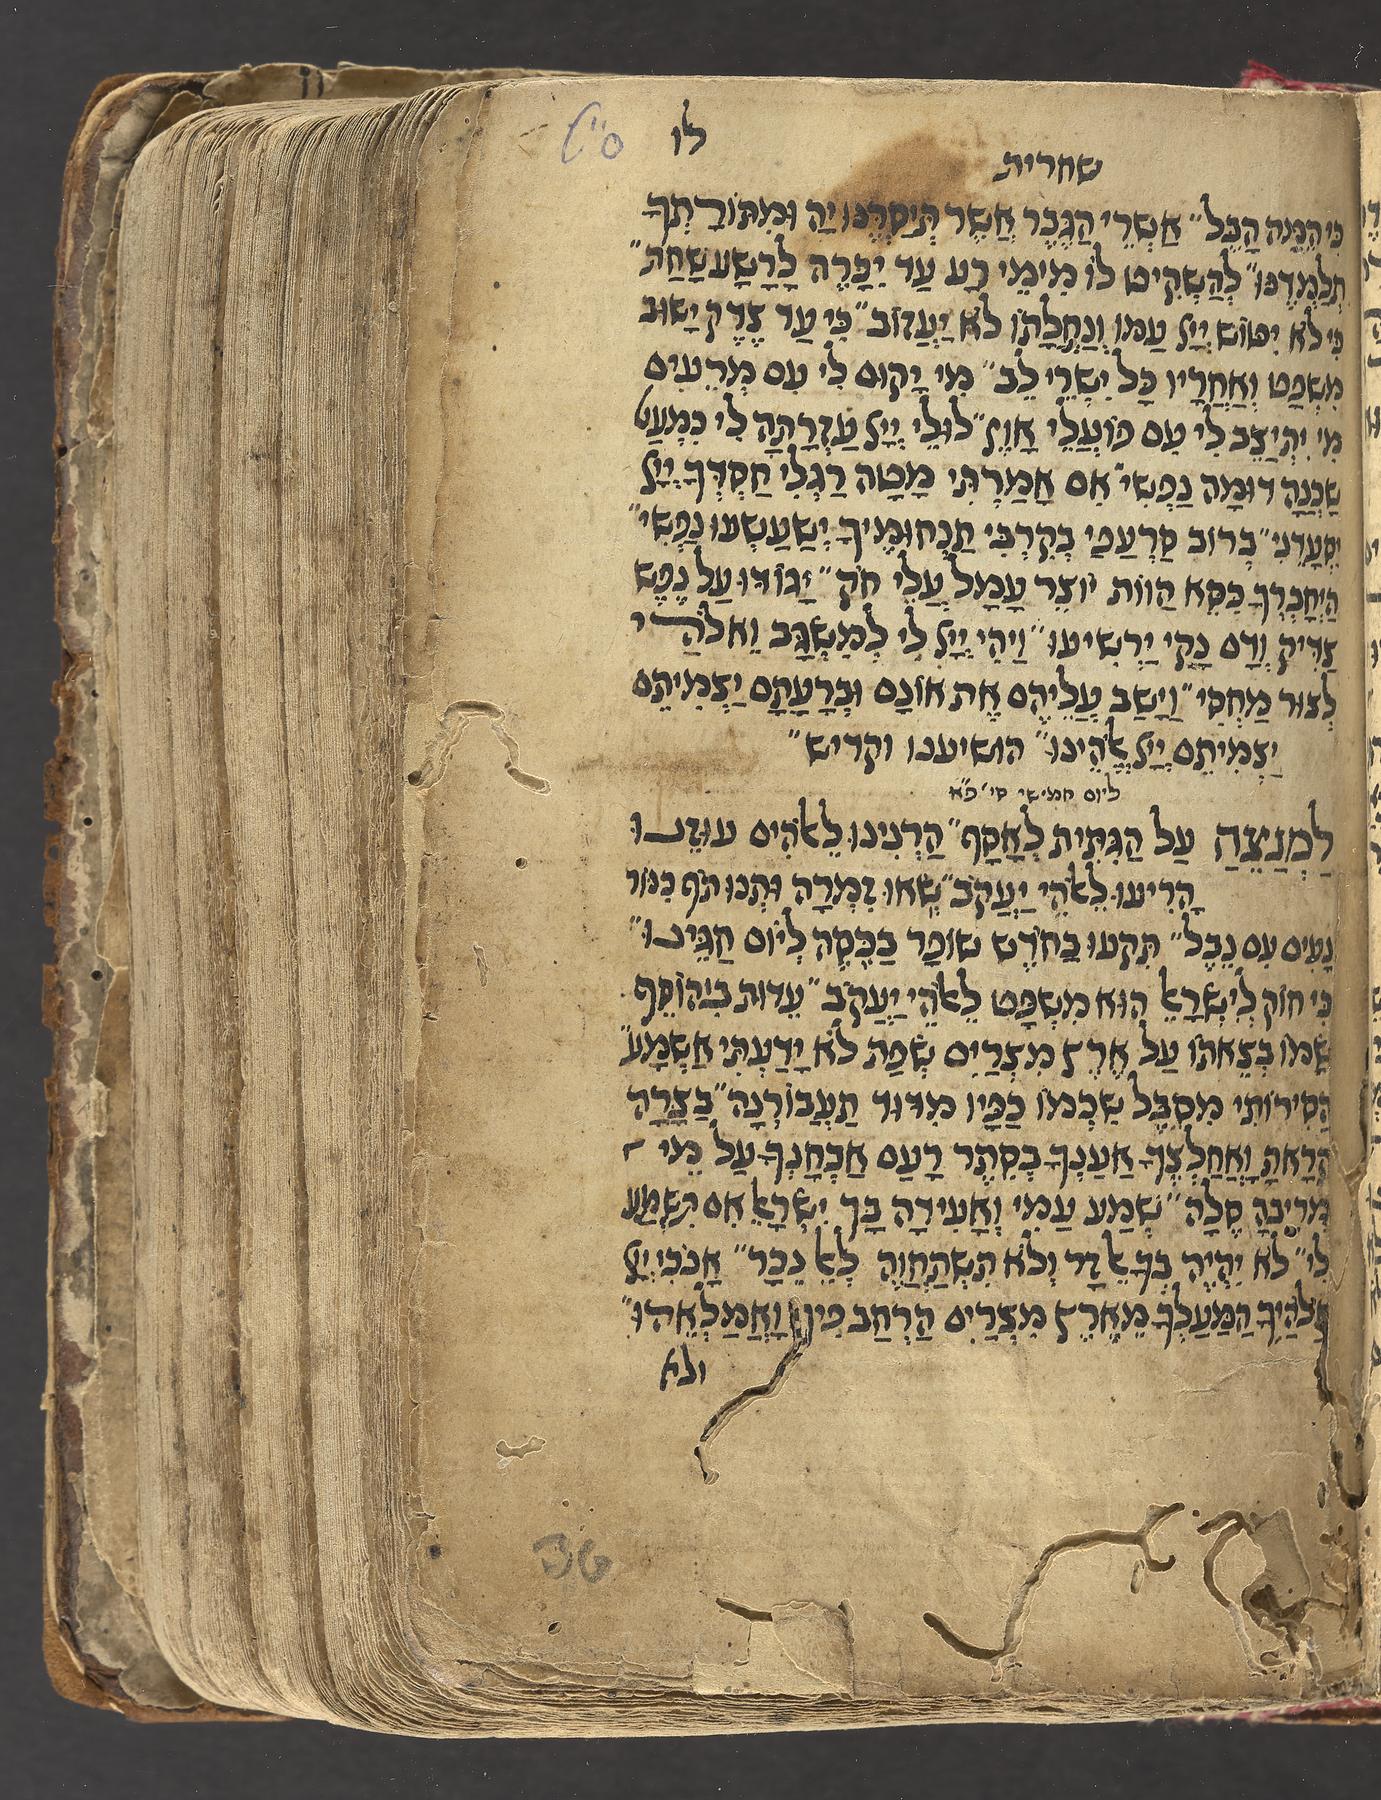 ס"ה
לו
שחרית
כִּי הֵמָּה הָבֶל״ אַשְׁרֵי הַגֶּבֶר אֲשֶׁר תְּיַסְּרֶנּוּ יַהּ וּמִתּוֹרָתְךָ
תְלַמְּדֶנּוּ״ לְהַשְׁקִיט לוֹ מִימֵי רָע עַד יִכָּרֶה לָרָשָׁע שָׁחַת״
כִּי לֹא יִטּוֹשׁ יְיָ עַמּוֹ וְנַחֲלָתוֹ לֹא יַעֲזוֹב״ כִּי עַד צֶדֶק יָשׁוּב
מִשְׁפָּט וְאַחֲרָיו כָּל יִשְׁרֵי לֵב״ מִי יָקוּם לִי עִם מְרֵעִים
מִי יִתְיַצֵּב לִי עִם פּוֹעֲלֵי אָוֶן״ לוּלֵי יְיָ עֶזְרָתָה לִּי כִּמְעַט
שָׁכְנָה דוּמָה נַפְשִׁי״ אִם אָמַרְתִּי מָטָה רַגְלִי חַסְדְּךָ יְיָ
יִסְעָדֵנִי״ בְּרוֹב סַרְעַפַּי בְּקִרְבִּי תַּנְחוּמֶיךָ יְשַׁעַשְׁעוּ נַפְשִׁי״
הַיְחָבְרְךָ כִּסֵּא הַוּוֹת יוֹצֵר עָמָל עֲלֵי חֹק״ יָגוֹדּוּ עַל נֶפֶשׁ
צַדִּיק וְדָם נָקִי יַרְשִׁיעוּ״ וַיְהִי יְיָ לִי לְמִשְׂגָּב וֵאלֹהַי
לְצוּר מַחְסִי״ וַיָּשֶׁב עֲלֵיהֶם אֶת אוֹנָם וּבְרָעָתָם יַצְמִיתֵם
יַצְמִיתֵם יְיָ אֱלֹהֵינוּ״ הושיענו וקדיש״
ליום חמישי סי׳ פ״א
לַמְנַצֵּחַ עַל הַגִּתִּית לְאָסָף״ הַרְנִינוּ לֵאלֹהִים עוּזֵּנוּ
הָרִיעוּ לֵאלֹהֵי יַעֲקֹב״ שְׂאוּ זִמְרָה וּתְנוּ תֹף כִּנּוֹר
נָעִים עִם נָבֶל״ תִּקְעוּ בַחֹדֶשׁ שׁוֹפָר בַּכֶּסֶה לְיוֹם חַגֵּינוּ״
כִּי חוֹק לְיִשְׂרָאֵל הוּא מִשְׁפָּט לֵאלֹהֵי יַעֲקֹב״ עֵדוּת בִּיהוֹסֵף
שָׂמוֹ בְּצֵאתוֹ עַל אֶרֶץ מִצְרַיִם שְׂפַת לֹא יָדַעְתִּי אֶשְׁמָע״
הֲסִירוֹתִי מִסֵּבֶל שִׁכְמוֹ כַּפָּיו מִדּוּד תַּעֲבוֹרְנָה״ בַּצָּרָה
קָרָאתָ וָאֲחַלְּצֶךָּ אֶעֶנְךָ בְּסֵתֶר רָעַם אֶבְחָנְךָ עַל מֵי
מְרִיבָה סֶלָה״ שְׁמַע עַמִּי וְאָעִידָה בָּךְ יִשְׂרָאֵל אִם תִּשְׁמַע
לִי״ לֹא יִהְיֶה בְךָ אֵל זָר וְלֹא תִשְׁתַּחֲוֶה לְאֵל נֵכָר״ אָנֹכִי יְיָ
אֱלֹהֶיךָ הַמַּעַלְךָ מֵאֶרֶץ מִצְרַיִם הַרְחֶב פִּיךָ וַאֲמַלְאֵהוּ״
ולא
36